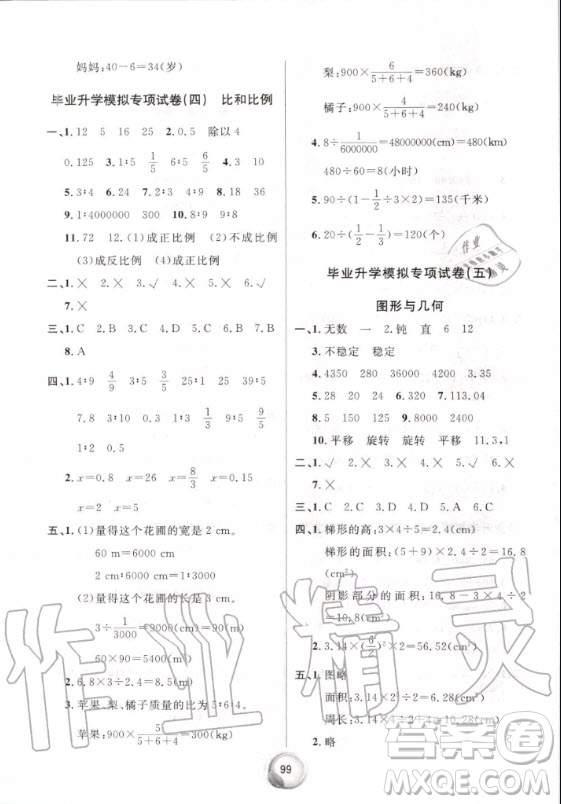 妈妈:40－6＝34(岁)
毕业升学模拟专项试卷(四)　比和比例
一、1.12　5　16　25　2.0.5　除以4
0.125　3.1∶5　1/5　6∶5　6/5　4.3　3
5.3∶4　6.24　7.4∶9　8.18　36
9.1∶4000000　10.8∶9　9∶8
11.72　12.(1)成正比例　(2)不成比例
(3)成反比例　(4)成正比例
二、1.×　2.×　3.√　4.√　5.√　6.×
7.×
三、1.C　2.C　3.D　4.A　5.B　6.B　7.A
8.A
四、1.4∶9　4/9　4∶15　1∶25　25　39∶5
7.8　3∶2　1∶3　1/3　9∶5　9/5
1∶3　1/3
2.x＝0.8　x＝26　x＝8/3　x＝0.15
x＝4　x＝4.8
五、1.(1)量得这个花圃的宽是2 cm。
60 m＝6000 cm
2 cm∶6000 cm＝1∶3000
(2)量得这个花圃的长是3 cm。
3÷1/3000＝9000(cm)＝90(m)
60×90＝5400(m²)
2.6×3÷2.4＝7.5(m)
3.苹果、梨、橘子质量的比为5∶6∶4。
苹果:900×5/(5＋6＋4)＝300(kg)
梨:900×6/(5＋6＋4)＝360(kg)
橘子:900×4/(5＋6＋4)＝240(kg)
4.8÷1/6000000＝48000000(cm)＝480(km)
480÷60＝8(小时)
5.90÷(1－1/2÷3×2)＝135(千米)
6.20÷(1/2－1/3)＝120(个)
毕业升学模拟专项试卷(五)
图形与几何
一、1.无数　一　2.钝　直　6　12
3.不稳定　稳定
4.4350　280　4350　0.28　430
5.28　20　24　6.2　7.113.04
8.5　150　125　9.8000　2400
10.平移　旋转　旋转　平移　11.3,1
二、1.√　2.√　3.×　4.√　5.×　6.√
7.×
三、1.C　2.C　3.C　4.D　5.D　6.A
四、1.梯形的高:3×4÷5＝2.4(cm)
梯形的面积:(5＋9)×2.4÷2＝16.8
(cm²)
阴影部分的面积:16.8－3×4÷2
＝10.8(cm²)
2.3.14×(6/2)²×2＝56.52(cm²)
五、1.图略
面积:3.14×2²＝12.56(cm²)
周长:3.14×2×2＝12.56(cm)
2.略
99
作业精灵